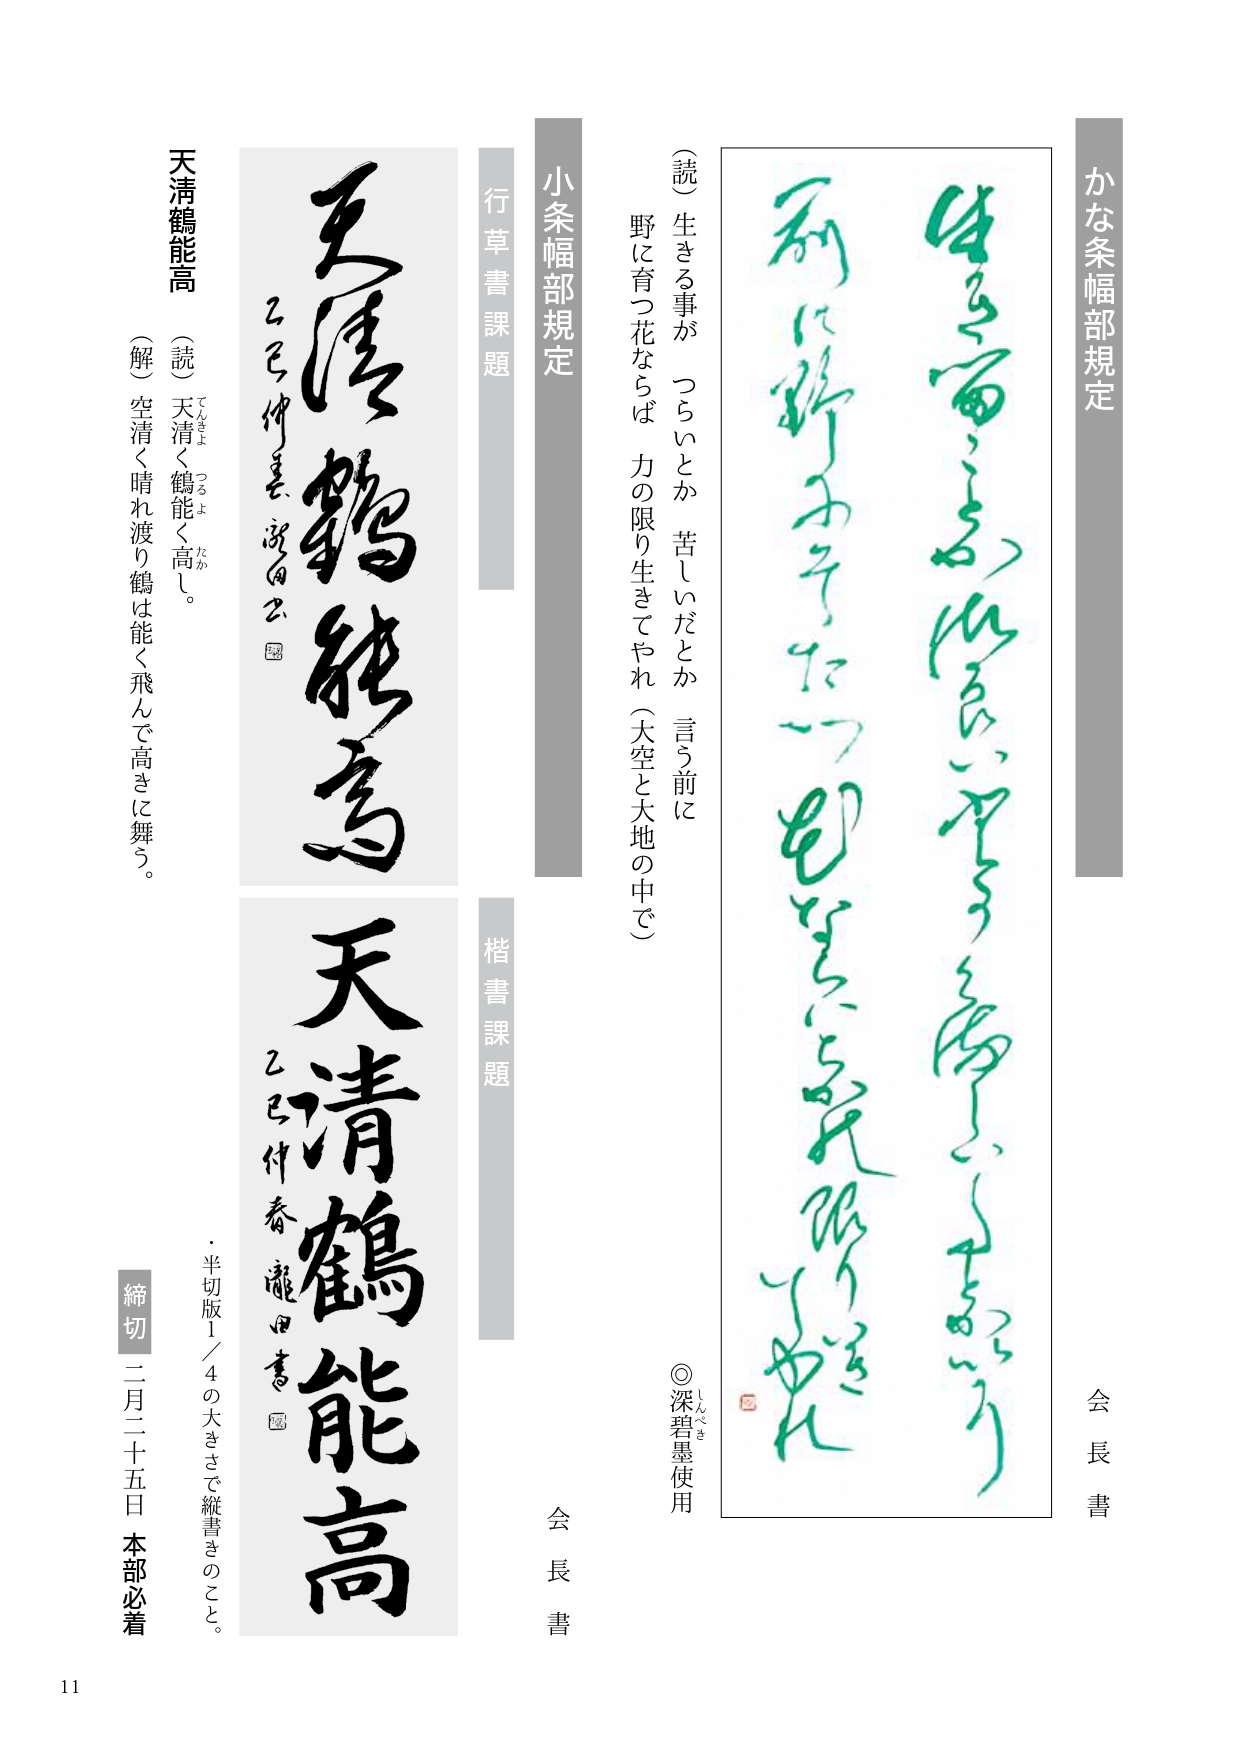 かな条幅部規定
会長書
(読) 生きる事が つらいとか 苦しいだとか 言う前に
野に育つ花ならば 力の限り生きてやれ (大空と大地の中で)
◎深碧墨使用
しんぺき
小条幅部規定
会長書
行草書課題
天清鶴能高
乙巳仲春 瀧田書
楷書課題
天清鶴能高
乙巳仲春 瀧田書
・半切版1/4の大きさで縦書きのこと。
天清鶴能高
(読) 天清く鶴能く高し。
てんきよ つるよ たか
(解) 空清く晴れ渡り鶴は能く飛んで高きに舞う。
締切 二月二十五日 本部必着
11